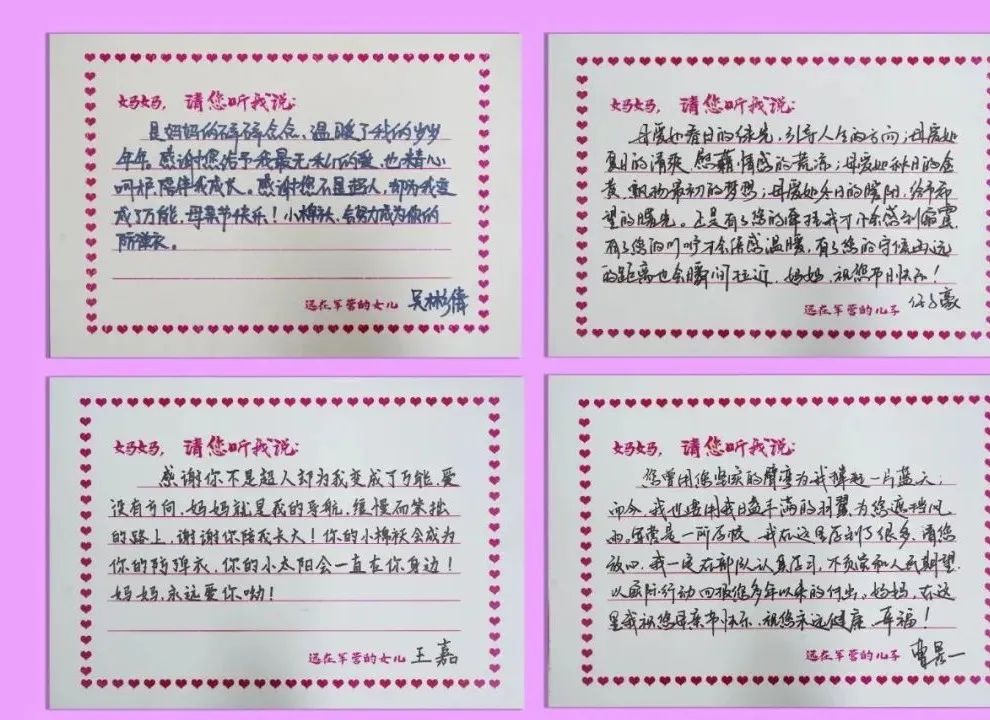 妈妈，请您听我说：
是妈妈的碎碎念念，温暖了我的岁岁
年年。感谢您给予我最无私的爱，也精心
呵护陪伴我成长。感谢您不是超人，却为我变
成了万能，母亲节快乐！小棉袄，会努力成为你的
防弹衣。
远在军营的女儿 吴彬倩
妈妈，请您听我说：
母爱如春日的绿光，引导人生的方向；母爱如
夏日的清爽，慰藉情感的荒凉；母爱如秋日的金
黄，飘扬最初的梦想；母爱如冬日的暖阳，给予希
望的曙光。正是有了您的牵挂我才不会感到孤单，
有了您的叮咛才会倍感温暖，有了您的守候遥远
的距离也会瞬间拉近，妈妈，祝您节日快乐！
远在军营的儿子 任子豪
妈妈，请您听我说：
感谢你不是超人却为我变成了万能，爱
没有方向，妈妈就是我的导航，缓慢而笨拙
的路上，谢谢你陪我长大！你的小棉袄会成为
你的防弹衣，你的小太阳会一直在你身边！
妈妈，永远爱你呦！
远在军营的女儿 王嘉
妈妈，请您听我说：
您曾用您坚实的臂弯为我撑起一片蓝天；
而今，我也要用我日益丰满的羽翼为您遮挡风
雨。军营是一所学校，我在这里学到了很多，请您
放心，我一定在部队认真学习，不负党和人民期望，
以实际行动回报您多年以来的付出，妈妈，在这
里我祝您母亲节快乐，祝您永远健康、幸福！
远在军营的儿子